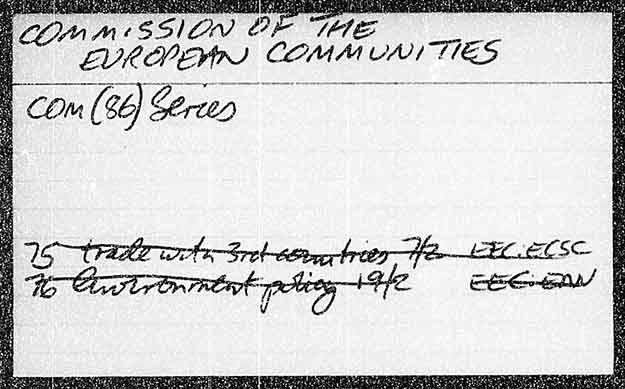 COMMISSION OF THE
EUROPEAN COMMUNITIES
COM (86) Series
75 trade with 3rd countries 7/2 EEC.ECSC
76 Environment policy 19/2 EEC.ENV